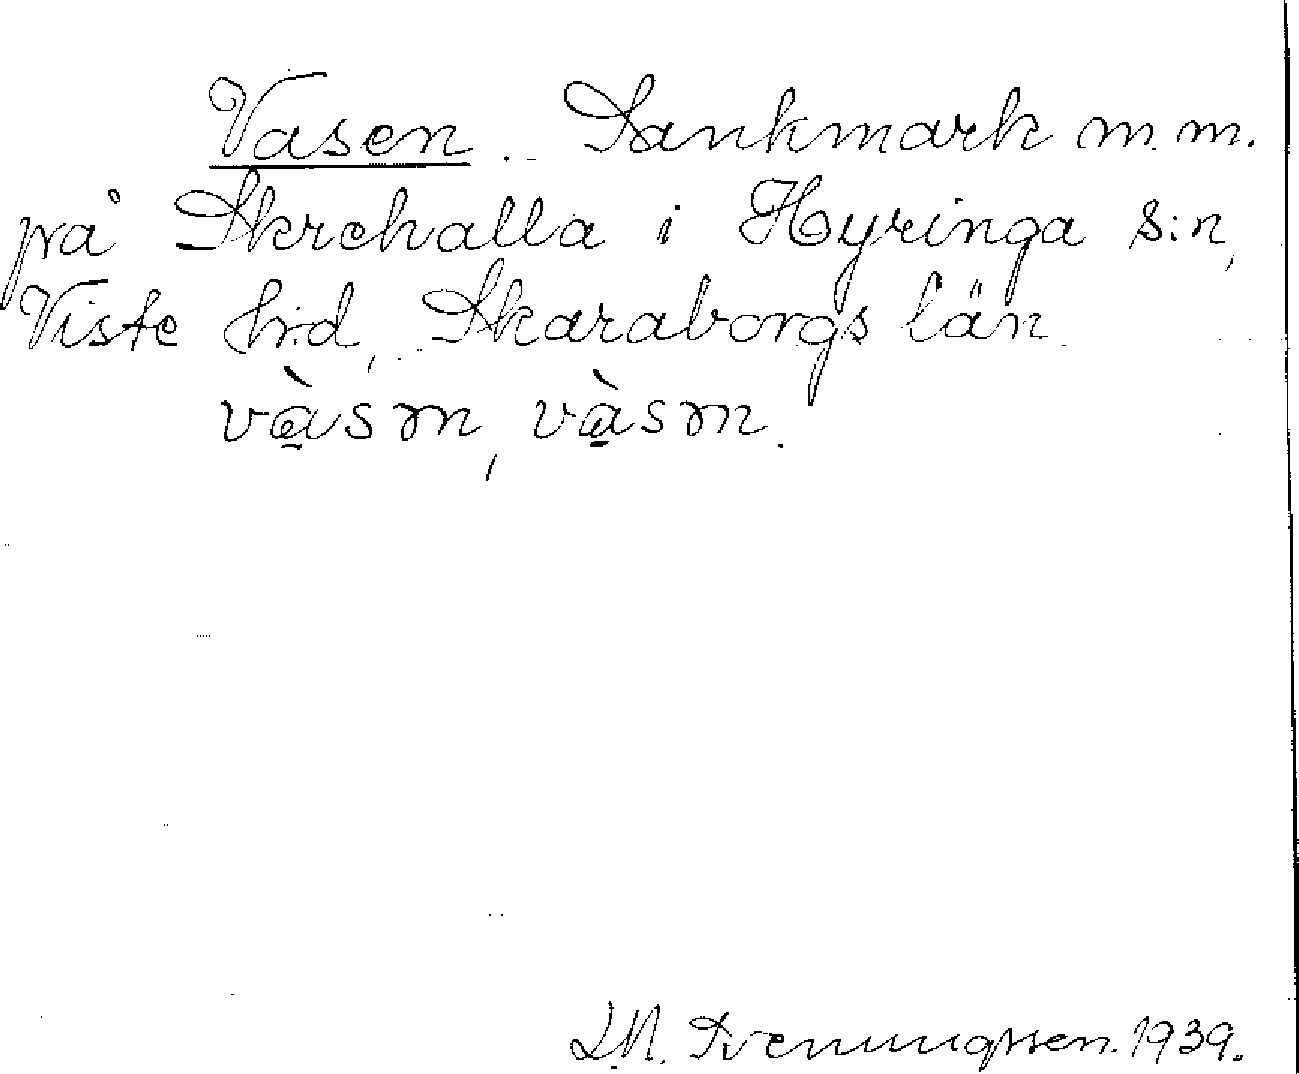 Vasen. Sankmark m.m.
på Skrehalla i Hyringa s:n,
Viste h:d, Skaraborgs län.
və̀sən, və̀sən.
Sveningsson. 1939.